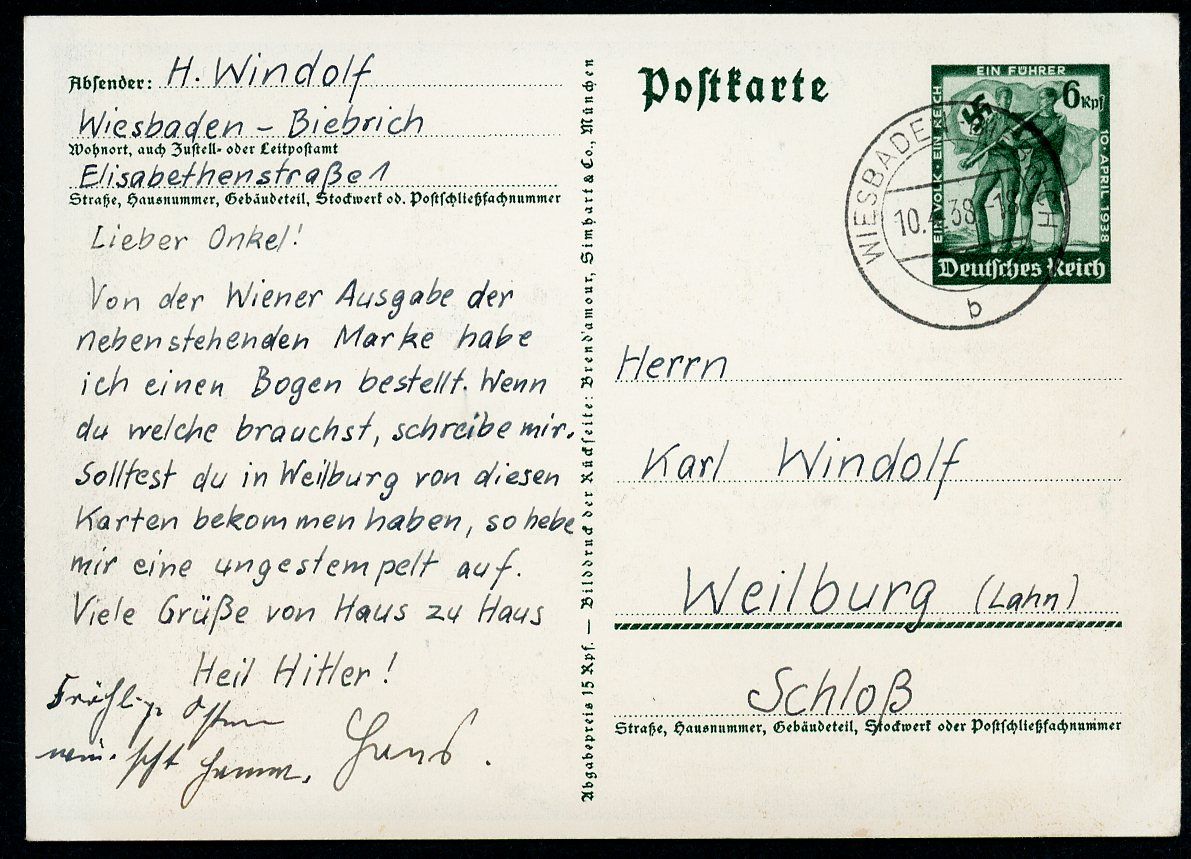 Absender: H. Windolf
Wiesbaden - Biebrich
Wohnort, auch Zustell- oder Leitpostamt
Elisabethenstraße 1
Straße, Hausnummer, Gebäudeteil, Stockwerk od. Postschließfachnummer
Lieber Onkel!
Von der Wiener Ausgabe der
nebenstehenden Marke habe
ich einen Bogen bestellt. Wenn
du welche brauchst, schreibe mir.
Solltest du in Weilburg von diesen
Karten bekommen haben, so hebe
mir eine ungestempelt auf.
Viele Grüße von Haus zu Haus
Heil Hitler!
Hans.
Ostern
Abgabepreis 15 Rpf. — Bilddruck der Rückseite: Brend'amour, Simhart & Co., München
Postkarte
EIN VOLK · EIN REICH
EIN FÜHRER
10. APRIL 1938
6 Rpf
Deutsches Reich
WIESBADEN
10.4.38
b
Herrn
Karl Windolf
Weilburg (Lahn)
Schloß
Straße, Hausnummer, Gebäudeteil, Stockwerk oder Postschließfachnummer